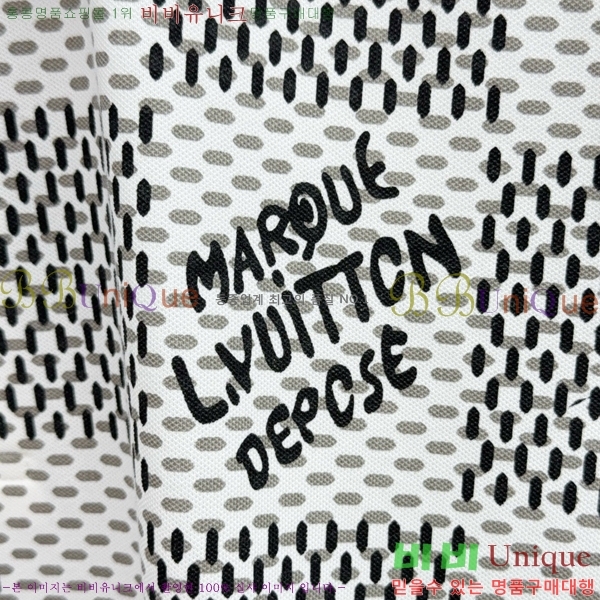 홍콩명품쇼핑몰 1위 비비유니크 명품구매대행
MARQUE
L.VUITTON
DEPOSE
BBUnique
홍콩업계 최고의 품질 NO.1
BBUnique
비비 Unique
믿을수 있는 명품구매대행
-본 이미지는 비비유니크에서 촬영한 100% 실사 이미지 입니다.-